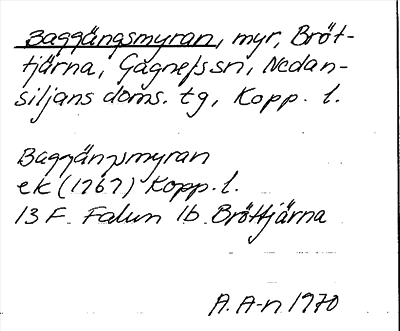 Baggängsmyran, myr, Bröt-
tjärna, Gagnefs sn, Nedan-
siljans doms. tg, Kopp. l.
Baggängsmyran
ek (1767) Kopp. l.
13 F Falun 1b Bröttjärna
A. A-n 1970